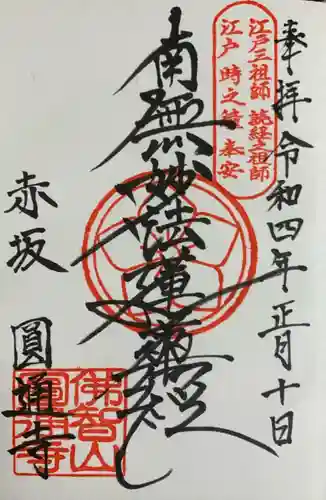 奉拝 令和四年正月十日
江戸三祖師 読経之祖師
江戸 時之鐘 奉安
南無妙法蓮華経
赤坂
圓通寺
佛智山
圓通寺